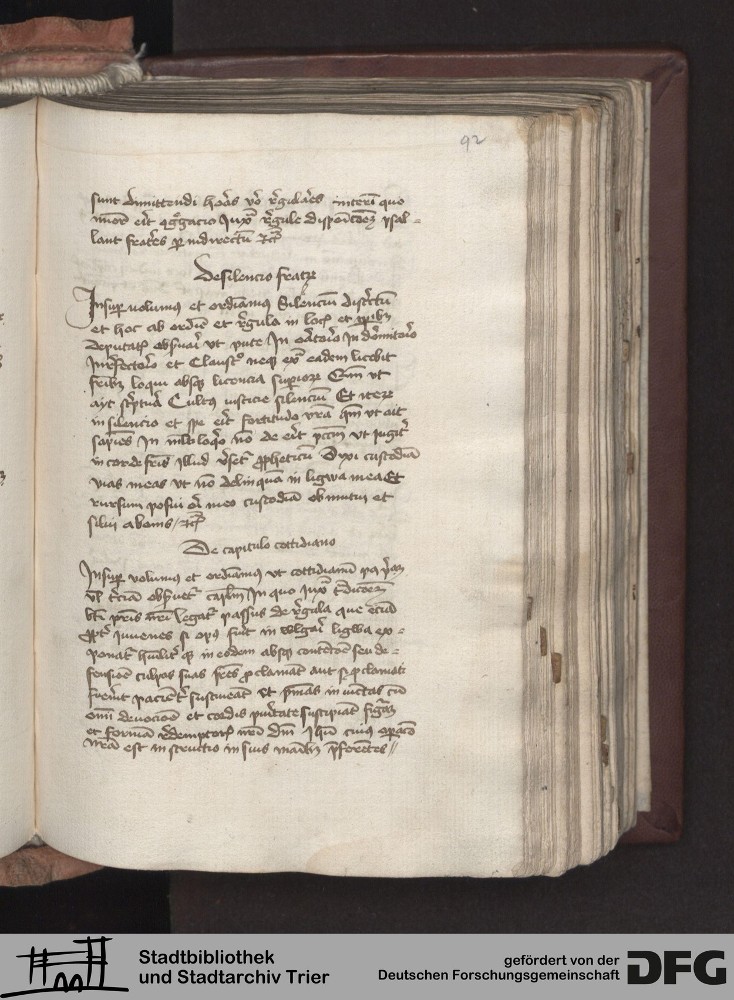 92
sunt dimittendi horas vero regulares interim quo
minor erit congregacio Juxta regule disposicionem psal-
lant fratres per indirectum etc
De silencio fratrum
Insuper volumus et ordinamus Silencium districtum
et hoc ab ordine et regula in locis et temporibus
deputatis observari ut pute In oratorio In dormitorio
In refectorio et Claustro neque extra eadem licebit
fratribus loqui absque licencia superiorum Cum ut
ayt scriptura Cultus iusticie silencium Et iterum
in silencio et spe erit fortitudo vestra quoniam ut ait
sapiens In multiloquio non deerit peccatum ut iugiter
in corde fratris illud versetur propheticum Dixi custodiam
vias meas ut non delinquam in ligwa mea Et
rursum posui ori meo custodiam obmutui et
silui a bonis etc
De capitulo cottidiano
Insuper volumus et ordinamus ut cottidianum post primam
vel terciam observetur capitulum In quo Juxta
beati patris nostri legatur passus de regula que eciam
propter iuvenes si opus fuerit in wlgari ligwa ex-
ponatur humiliter que in eodem absque contencione seu de-
fensione culpas suas fratres proclament aut si proclamati
fuerint pacienter sustineant ut penitencias iniunctas cum
omni devocione et cordis puritate suscipiant
et formam redemptoris nostri domini Jhesu cuius
nostra est instructio in suis manibus preferentes
Stadtbibliothek
und Stadtarchiv Trier
gefördert von der
Deutschen Forschungsgemeinschaft
DFG